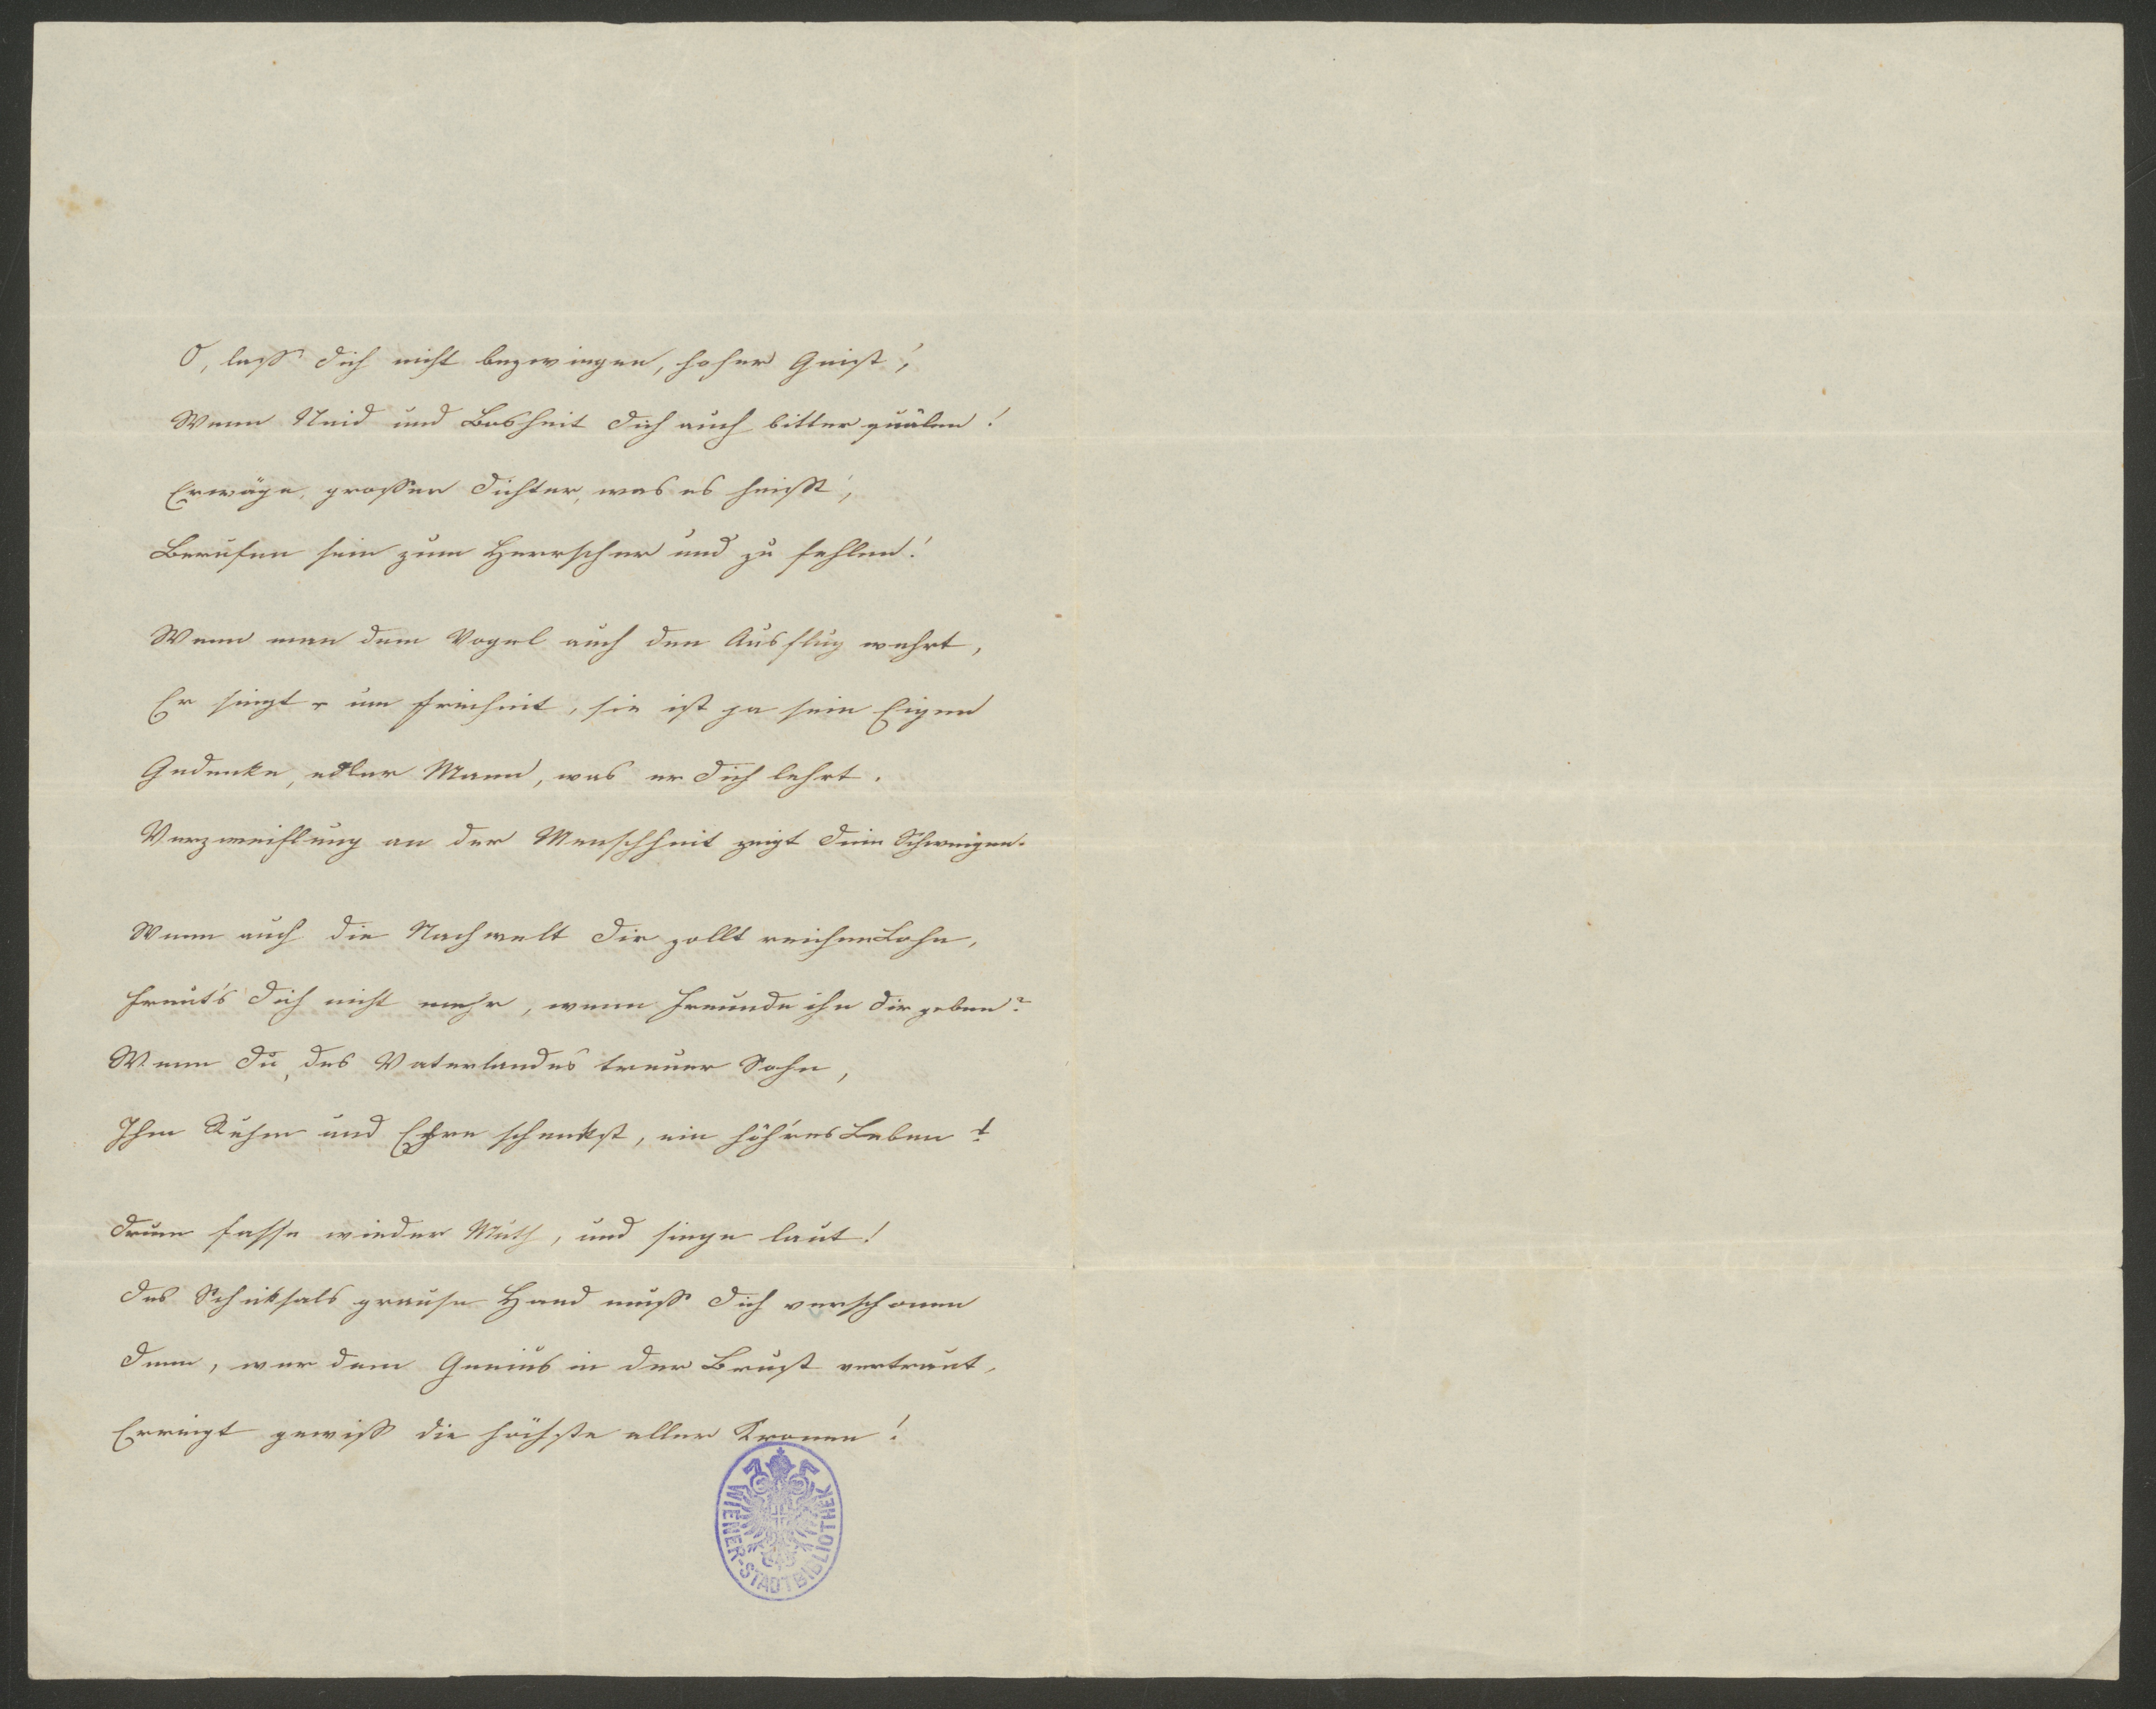 O, lass Dich nicht bezwingen, hoher Geist,
Wenn Neid und Bosheit Dich auch bitter quälen!
Erwäge, grosser Dichter, was es heisst,
Berufen sein zum Herrscher und zu fehlen!
Wenn man dem Vogel auch den Ausflug wehrt,
Er singt um Freiheit, sie ist ja sein Eigen
Gedenke, edler Mann, was er Dich lehrt.
Verzweiflung an der Menschheit zeigt Dein Schweigen.
Wenn auch die Nachwelt Dir zollt reichen Lohn,
Freut's Dich nicht mehr, wenn Freunde ihn Dir geben?
Wenn Du, des Vaterlandes treuer Sohn,
Ihm Ruhm und Ehre schenkst, ein höh'res Leben!
Drum fasse wieder Muth, und singe laut!
Des Schiksals grause Hand muss Dich verschonen
Denn, wer dem Genius in der Brust vertraut,
Erringt gewiss die höchste aller Kronen!
WIENER-STADTBIBLIOTHEK